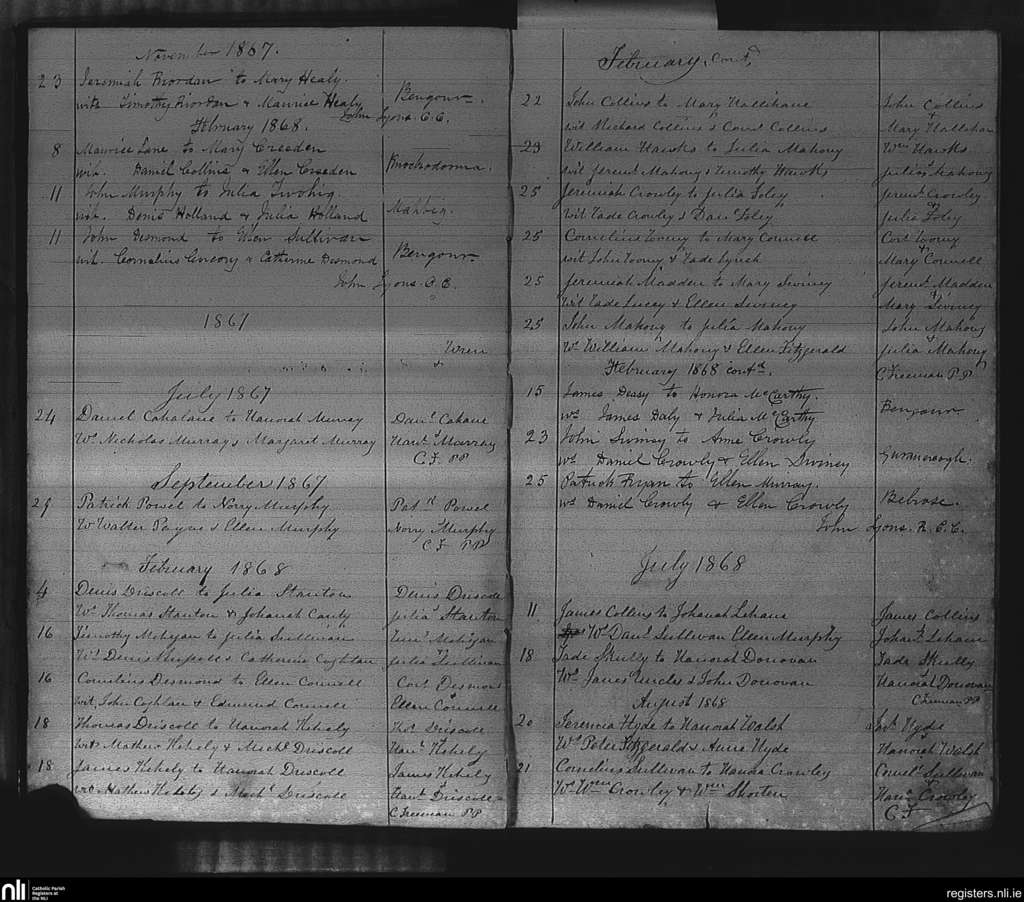 November 1867.
23 Jeremiah Riordan to Mary Healy.
wits Timothy Riordan & Maurice Healy Bengour.
John Lyons C.C.
February 1868.
8 Maurice Lane to Mary Creeden
wit. Daniel Collins & Ellen Creeden Knockadooma.
11 John Murphy to Julia Twohig
wit. Denis Holland & Julia Holland
11 John Desmond to Ellen Sullivan
wit. Cornelius & Catherine Desmond Bengour
John Lyons C.C.
1867
July 1867
24 Daniel Cahalane to Hanorah Murray Danl Cahane
Ws Nicholas Murray & Margaret Murray Hanh Murray
C.F. PP
September 1867
29 Patrick Powel to Nory Murphy Patk Powel
Ws Walter Payne & Ellen Murphy Norry Murphy
C F PP
February 1868
4 Denis Driscoll to Julia Stanton Denis Driscoll
Ws Thomas Stanton & Johanah Canty Julia Stanton
16 Timothy Mohigan to Julia Sullivan Timy Mohigan
Ws Denis & Catherine Coghlan Julia Sullivan
16 Cornelius Desmond to Ellen Connell Cort Desmond
wit John Coghlan & Edmund Connell Ellen Connell
18 Thomas Driscoll to Hanorah Kehely Thos Driscoll
Wits Mathew Kehely & Michl Driscoll Hanh Kehely
18 James Kehely to Hanorah Driscoll James Kehely
Mathew Kehely & Michl Driscoll Hanh Driscoll
C Freeman PP
February Contd
22 John Collins to Mary Hallihane John Collins
wit Michael Collins & Cort Collins Mary Hallihan
23 William Hawks to Julia Mahony Wm Hawks
wit Jeremh Mahony & Timothy Hawks Julia Mahony
25 Jeremiah Crowley to Julia Foley Jeremh Crowley
wit Tade Crowley & Danl Foley Julia Foley
25 Cornelius Toomy to Mary Connell Cort Toomy
wit John Toomy & Tade Lynch Mary Connell
25 Jeremiah Madden to Mary Swiney Jeremh Madden
wit Tade Lucey & Ellen Swiney Mary Swiney
25 John Mahony to Julia Mahony John Mahony
Ws William Mahony & Ellen Fitzgerald Julia Mahony
C Freeman P P
February 1868 contd.
15 James Deasy to Honora McCarthy. Bengour
ws James Daly & Julia McCarthy
23 John Swiney to Anne Crowly
ws Daniel Crowly & Ellen Swiney
25 Patrick Ryan to Ellen Murray.
ws Daniel Crowly & Ellen Crowly Belrose.
John Lyons R.C.C.
July 1868
11 James Collins to Johanah Lehane James Collins
Ws Danl Sullivan Ellen Murphy Johanh Lehane
18 Tade Skully to Hanorah Donovan Tade Skully
Ws James & John Donovan Hanorah Donovan
C Freeman PP
August 1868
20 Jeremia Hyde to Hanorah Walsh Hyde
Ws Peter Fitzgerald & Anne Hyde Hanorah Walsh
21 Cornelius Sullivan to Hanora Crowley Cornels Sullivan
Ws Wm Crowley & Wm Shorten Hanh Crowley
C F
nli Catholic Parish Registers at the NLI
registers.nli.ie